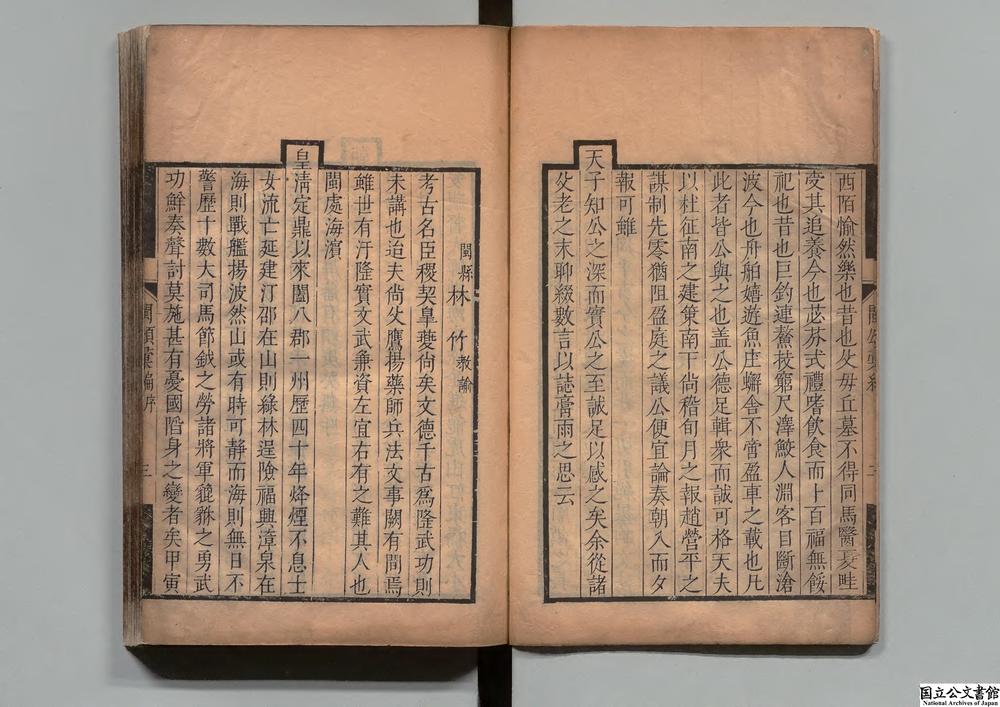 西陌愉然樂也昔也父母丘墓不得同馬醫夏畦
受其追養今也苾芬式禮嗜飲食而卜百福無餒
祀也昔也巨釣連鰲技窮尺澤鮫人淵客目斷滄
波今也舟舶嬉遊魚庄蠏舍不啻盈車之載也凡
此者皆公與之也盖公德足輯衆而誠可格天夫
以杜征南之建策南下尚稽旬月之報趙營平之
謀制先零猶阻盈庭之議公便宜論奏朝入而夕
報可雖
天子知公之深而實公之至誠足以感之矣余從諸
父老之末聊綴數言以誌膏雨之思云
閩縣林竹教諭
考古名臣稷契臯夔尚矣文德千古為隆武功則
未講也迨夫尚父鷹揚藥師兵法文事闕有間焉
雖世有汙隆實文武兼資左宜右有之難其人也
閩處海濱
皇淸定鼎以來闔八郡一州歷四十年烽煙不息士
女流亡延建汀邵在山則綠林逞險福興漳泉在
海則戰艦揚波然山或有時可静而海則無日不
警歷十數大司馬節鉞之勞諸將軍貔貅之勇武
功鮮奏聲討莫施甚有憂國殞身之變者矣甲寅
閩頌彙編
序
三